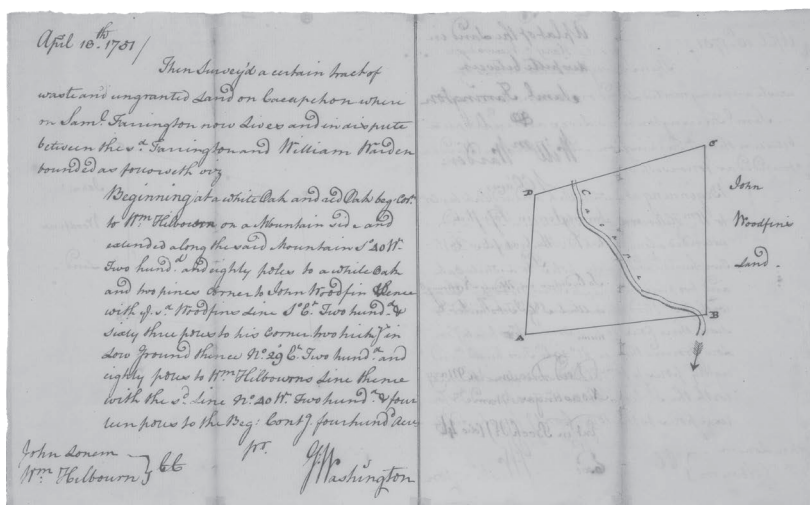 April 18th. 1751/
Then Survey'd a certain tract of
waste and ungranted Land on Cacapehon where
on Saml. Farrington now Lives and in dispute
between the sd. Farrington and William Warden
bounded as followeth viz
Beginning at a white Oak and red Oak beg Cor.
to Wm Hilbourn on a Mountain side and
extended along the said Mountain So. 40 Wt.
Two hund.d and eighty poles to a white Oak
and two pines corner to John Woodfin thence
with ye. sd. Woodfins Line So. Et. Two hund.d &
sixty three poles to his corner two hick.ys in
Low Ground thence No. 29 Et. Two hund.d and
eighty poles to Wm. Hilbourns Line thence
with the sd. Line No. 40 Wt. Two hund.d & four
teen poles to the Beg: Conty. four hund.d Acres
pr.
GWashington
John Lonem
Wm Hilbourn } CC
John
Woodfins
Land.
C
B
A